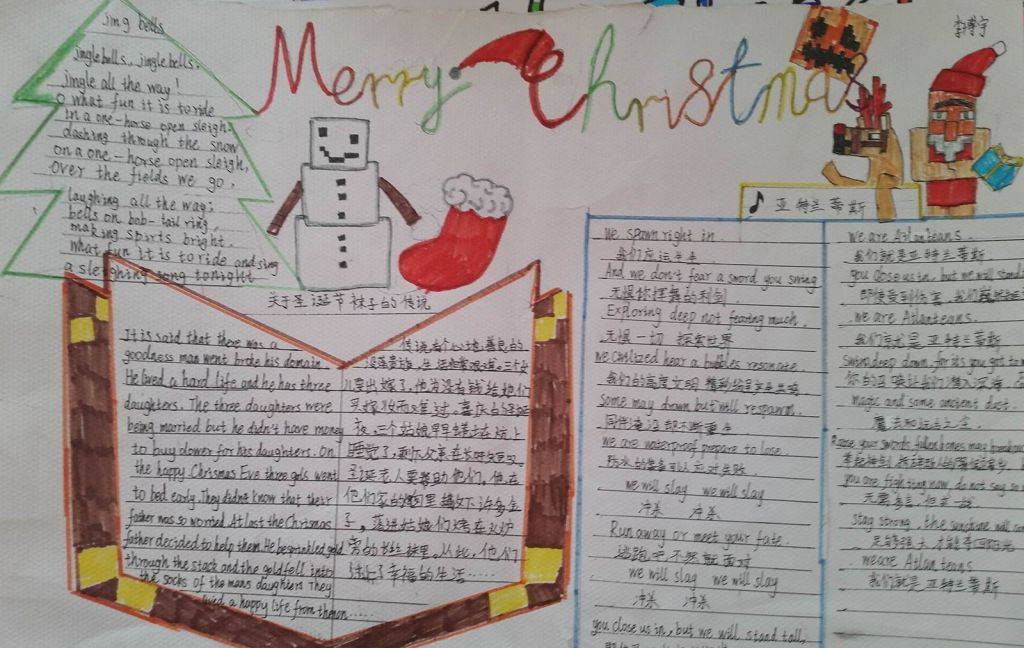 Merry Christmas
jing bells
jingle bells, jingle bells,
jingle all the way!
O what fun it is to ride
in a one-horse open sleigh.
dashing through the snow
on a one-horse open sleigh,
over the fields we go,
laughing all the way;
bells on bob-tail ring,
making spirts bright.
what fun it is to ride and sing
a sleighing song tonight
关于圣诞节袜子的传说
It is said that there was a
goodness man went broke his domain.
He lived a hard life and he has three
daughters. The three daughters were
being married but he didn't have money
to buy dower for his daughters. On
the happy Chrismas Eve three girls went
to bed early. They didn't know that their
father was so worried. At last the Chrismas
father decided to help them. He besprinkled gold
through the stack and the gold fell into
the socks of the mans daughters They
lived a happy life from then on.....
传说有个心地善良的
没落贵族,生活非常艰难。三个女
儿要出嫁了,他
睡觉了,
圣诞老人要帮助他们。他在
他们家的烟囱里撒下许多金
子,落进姑娘们烤在火炉
旁的长丝袜里,从此,他们
过上了幸福的生活......
♪ 亚特兰蒂斯
We spawn right in
我们应运而生
And we don't fear a sword you swing
无惧你挥舞的利剑.
Exploring deep not fearing much.
无惧一切 探索世界
We civilized hear a bubbles resonate.
我们的高度文明
Some may drown but will respawn.
同伴淹没却不断重生
We are waterproof prepare to lose.
防水的装备可以应对失败
we will slay we will slay
冲杀 冲杀
Run away or meet your fate.
逃跑吧不然就面对
we will slay we will slay
冲杀 冲杀
you close us in, but we will stand tall,
We are Atlanteans.
我们就是亚特兰蒂斯
you close us in, but we will stand
即使受到伤害,我们
We are Atlanteans.
我们就是亚特兰蒂斯
Swim deep down, for it's you got to
magic and some ancient dust.
魔法和远古之尘
Raise your swords fallen homes may
you are fighting now, do not say so
stay strong, the sunshine will
足够强大 才能
We are Atlanteans
我们就是亚特兰蒂斯